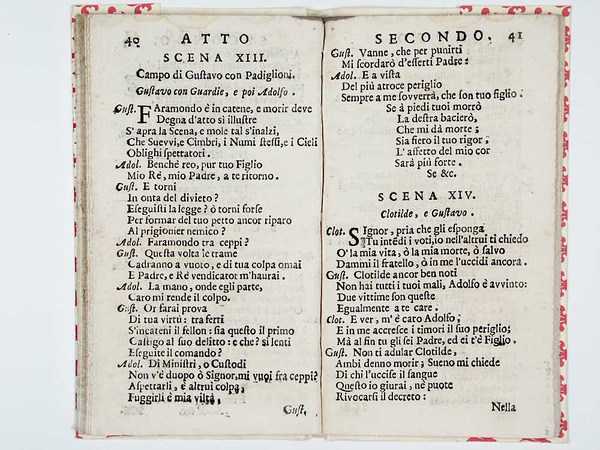 40 ATTO
SCENA XIII.
Campo di Gustavo con Padiglioni.
Gustavo con Guardie, e poi Adolfo.
Gust. FAramondo è in catene, e morir deve
Degna d'atto sì illustre
S' apra la Scena, e mole tal s'inalzi,
Che Suevvi, e Cimbri, i Numi stessi, e i Cieli
Oblighi spettatori.
Adol. Benche reo, pur tuo Figlio
Mio Rè, mio Padre, a te ritorno.
Gust. E torni
In onta del divieto?
Eseguisti la legge? ò torni forse
Per formar del tuo petto ancor riparo
Al prigionier nemico?
Adol. Faramondo tra ceppi?
Gust. Questa volta le trame
Cadranno a vuoto, e di tua colpa omai
E Padre, e Rè vendicator m'haurai.
Adol. La mano, onde egli parte,
Caro mi rende il colpo.
Gust. Or farai prova
Di tua virtù: tra ferri
S'incateni il fellon: sia questo il primo
Castigo al suo delitto: e che? si lenti
Eseguite il comando?
Adol. Di Ministri, o Custodi
Non v'è duopo ò Signor, mi vuoi fra ceppi?
Aspettarli, è altrui colpa;
Fuggirli è mia viltà,
Gust,
SECONDO. 41
Gust. Vanne, che per punirti
Mi scordarò d'esserti Padre:
Adol. E a vista
Del più atroce periglio
Sempre a me sovverrà, che son tuo figlio.
Se à piedi tuoi morrò
La destra bacierò,
Che mi dà morte;
Sia fiero il tuo rigor,
L' affetto del mio cor
Sarà più forte.
Se &c.
SCENA XIV.
Clotilde, e Gustavo.
Clot. SIgnor, pria che gli esponga
Tu intēdi i voti, io nell'altrui ti chiedo
O' la mia vita, ò la mia morte, ò salvo
Dammi il fratello, ò in me l'uccidi ancora.
Gust. Clotilde ancor ben noti
Non hai tutti i tuoi mali, Adolfo è avvinto:
Due vittime son queste
Egualmente a te care.
Clot. E ver, m' è caro Adolfo;
E in me accresce i timori il suo periglio;
Mà al fin tu gli sei Padre, ed ei t'è Figlio.
Gust. Non ti adular Clotilde,
Ambi denno morir; Sueno mi chiede
Di chi l'uccise il sangue
Questo io giurai, nè puote
Rivocarsi il decreto:
Nella